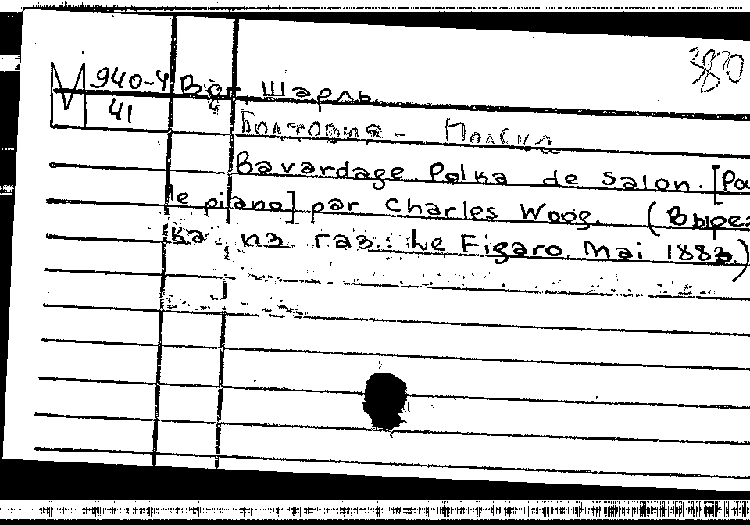 380
М 940-4 Вог, Шарль.
41
Болтовня - Полька
Bavardage. Polka de salon. [Po
le piano] par Charles Woog. (Выре
ка из газ.: Le Figaro. Mai 1883.)